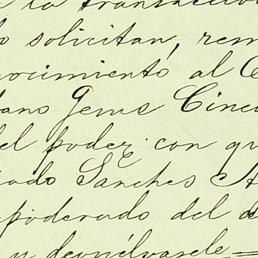 la transacci
solicitan, rem
nocimiento al C
tano Genus Cinc
el poder con qu
iado Sanches A
apoderado del d
y devuélvasele